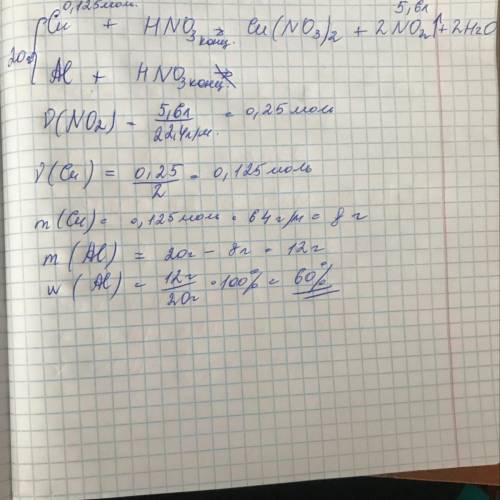 0,125мол. 5,6л
20г { Cu + HNO3 конц. → Cu(NO3)2 + 2NO2↑ + 2H2O
Al + HNO3 конц. ↛
ν(NO2) = 5,6л / 22,4л/м. = 0,25мол
ν(Cu) = 0,25 / 2 = 0,125 моль
m(Cu) = 0,125мол · 64г/м = 8г
m(Al) = 20г - 8г = 12г
w(Al) = 12г / 20г · 100% = 60%